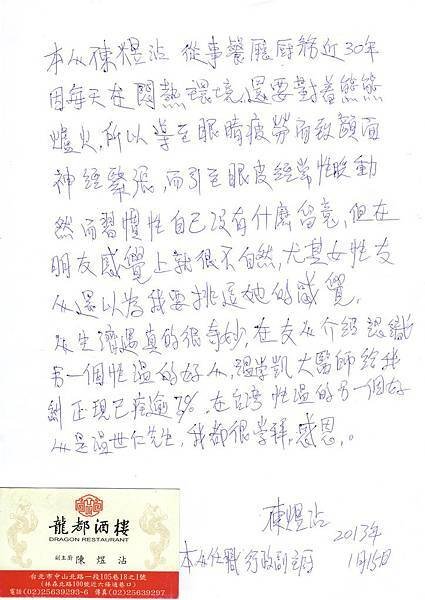 本人陳煜沾 從事餐廳廚務近30年
因每天在悶熱環境,還要對着熊熊
爐火,所以導至眼睛疲勞而致顏面
神經緊張,而引至眼皮經常性跳動
然而習慣性自己没有什麼留意,但在
朋友感覺上就很不自然,尤其女性友
人還以為我要挑逗她的感覺,
人生際遇真的很奇妙,在友人介紹 認識
另一個性溫的好人,溫崇凱大醫師給我
糾正現已痊逾7%.在台湾性溫的另一個好
人是溫世仁先生,我都很崇拜,感恩。
陳煜沾
2013年
本人任職行政副主厨 1月15日
龍都酒樓
DRAGON RESTAURANT
副主廚 陳煜沾
台北市中山北路一段105巷18之1號
(林森北路100號近六條通巷口)
電話(02)25639293-6 傳真(02)25639297